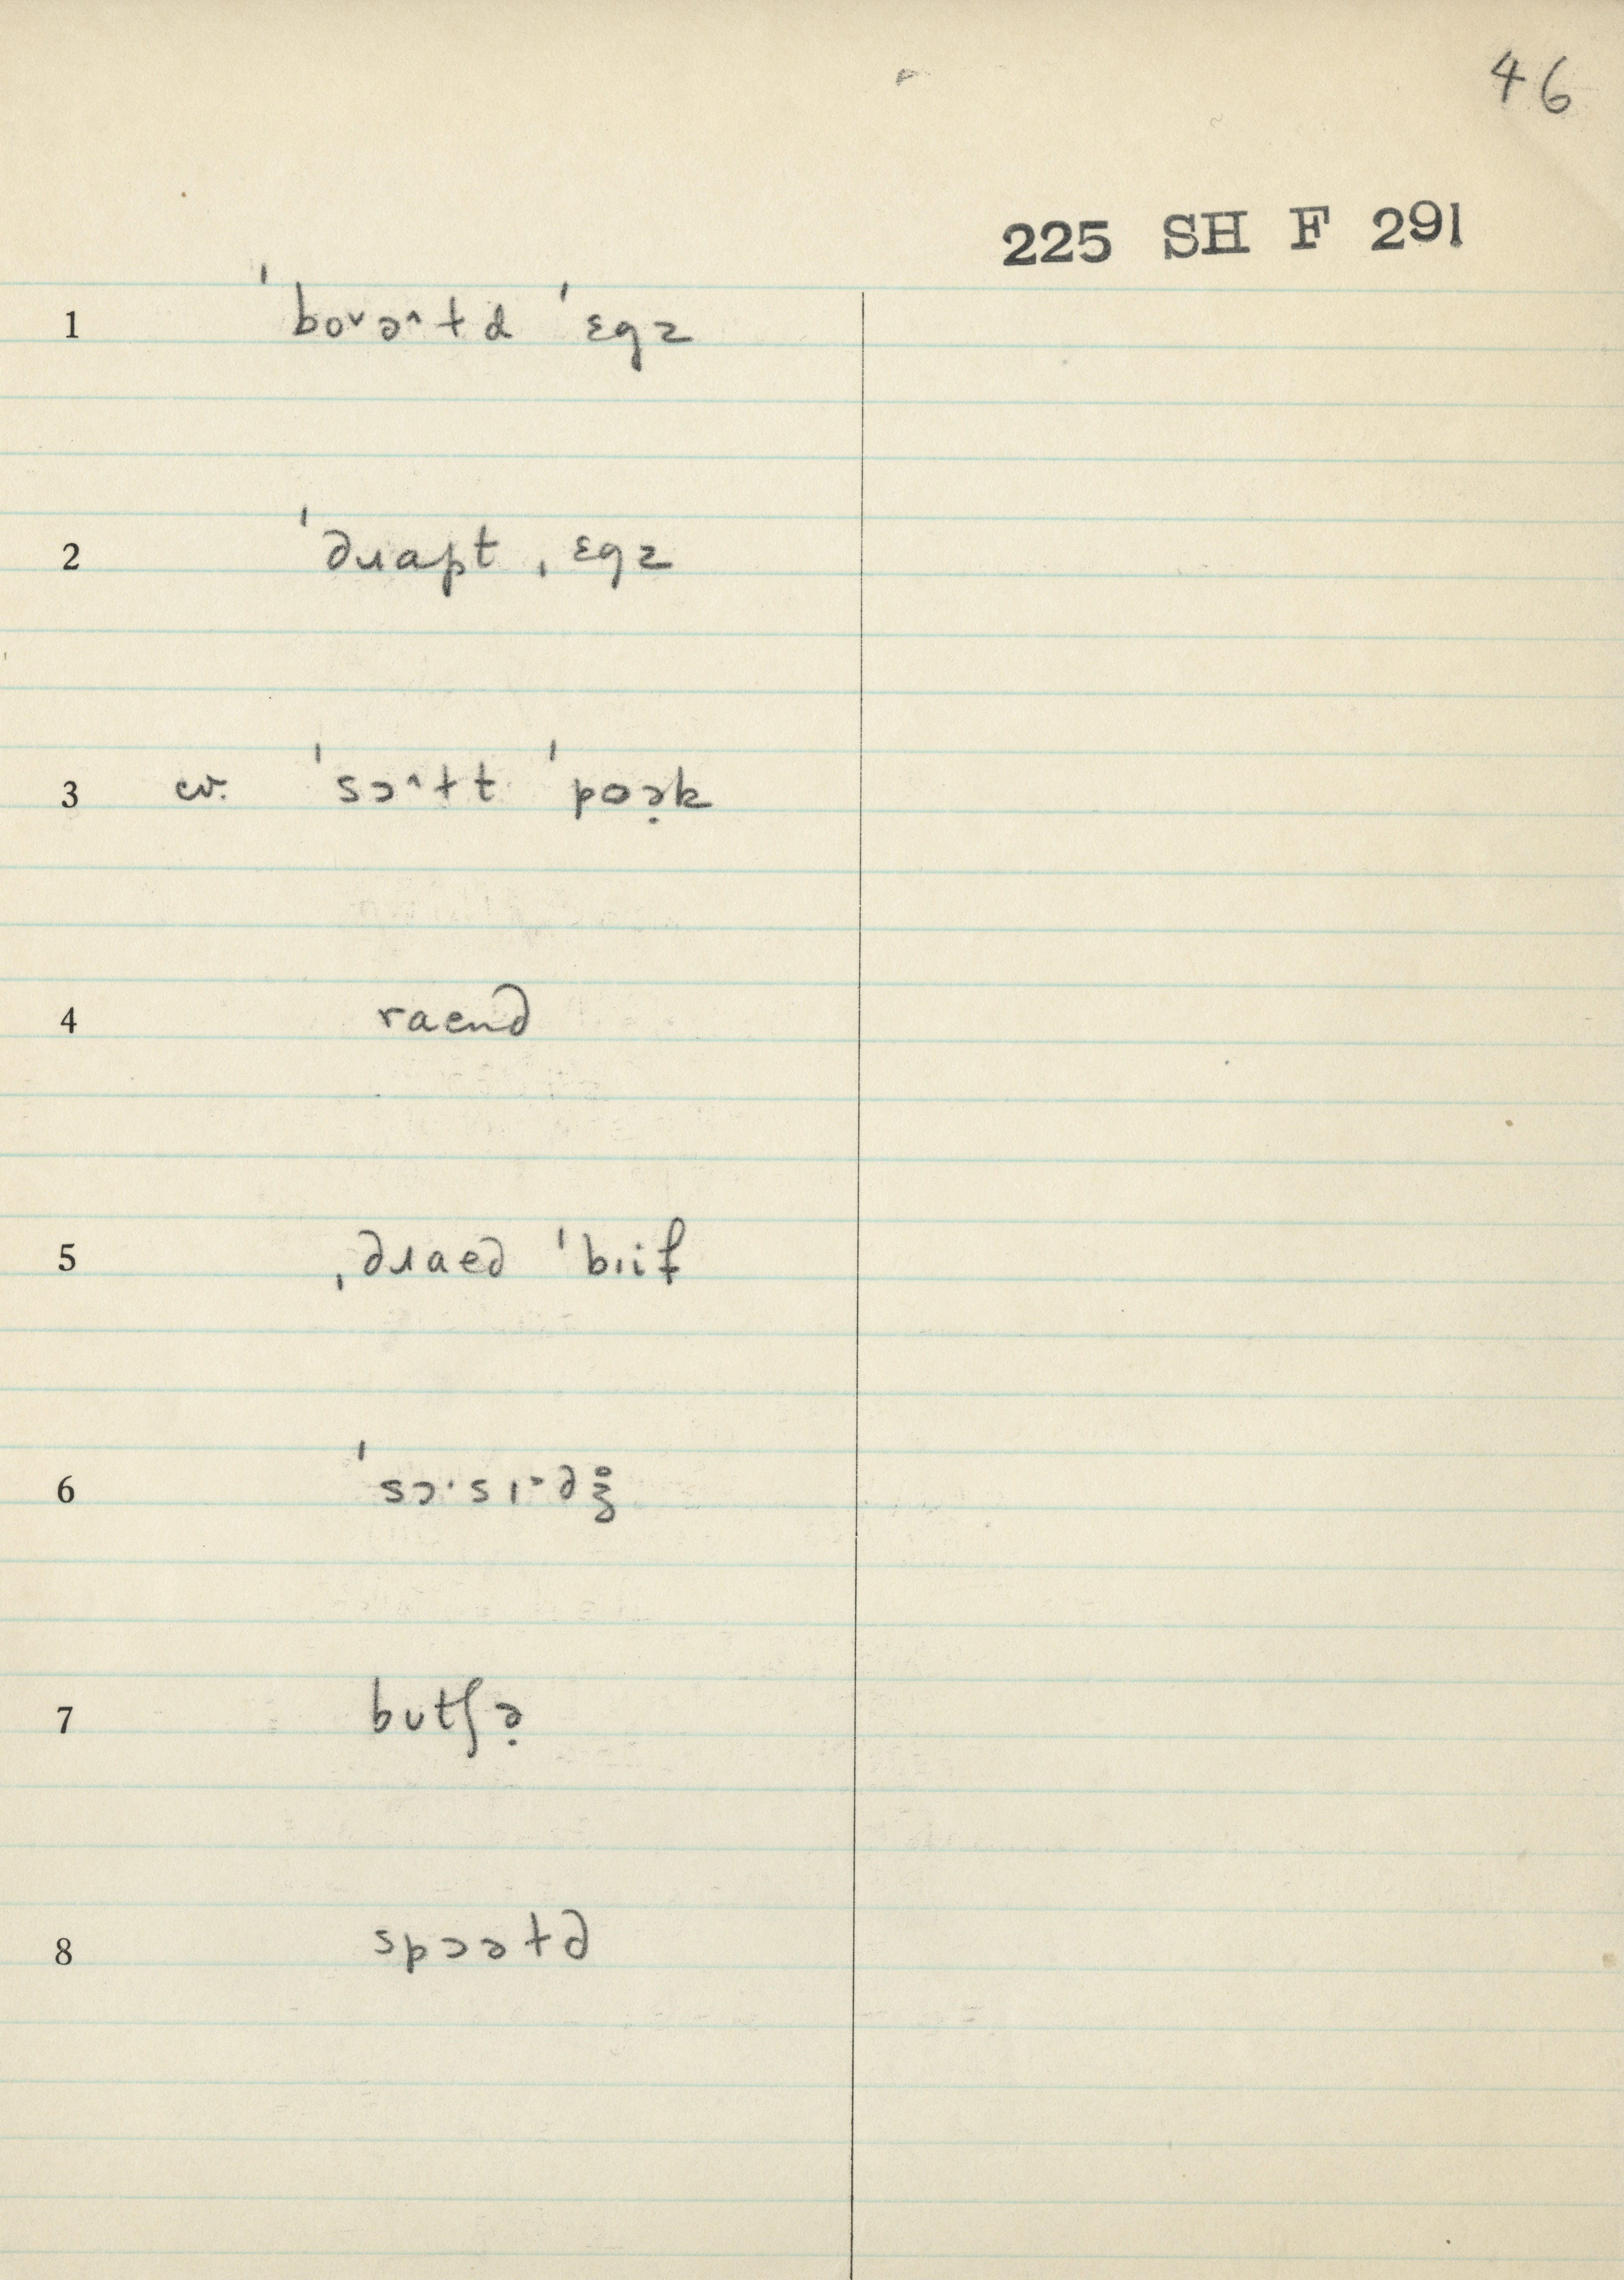 46
225 SH F 291
1 ˈboᵛə^ɫd ˈɛgz
2 ˈdɹapt ˌɛgz
3 cv. ˈsɔ^ɫt ˈpoə̣k
4 raend
5 ˌdɹaed ˈbiif
6 ˈsɔ·sɪ·dʒ̊
7 butʃə̣
8 spɔəɫd